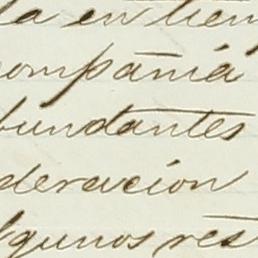 la en tiem
compañia
bundantes
deracion
lgunos res